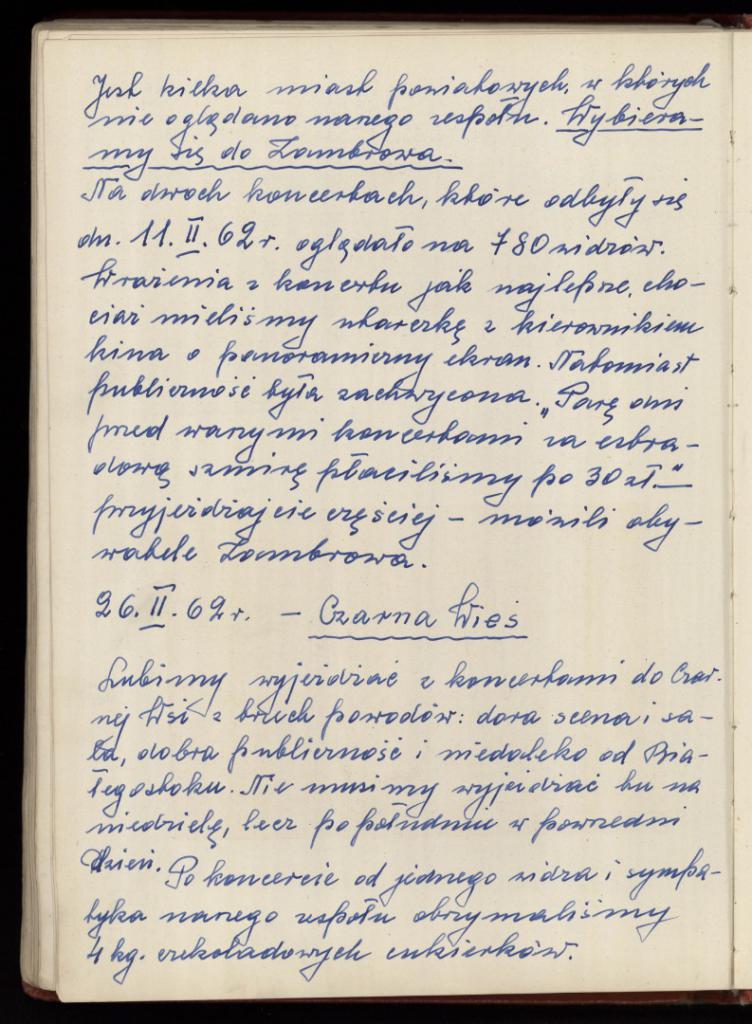 Jest kilka miast powiatowych, w których
nie oglądano naszego zespołu. Wybiera-
my się do Zambrowa.
Na dwóch koncertach, które odbyły się
dn. 11.II.62r. oglądało na 780 widzów.
Wrażenia z koncertu jak najlepsze, cho-
ciaż mieliśmy utarczkę z kierownikiem
kina o panoramiczny ekran. Natomiast
publiczność była zachwycona. „Parę dni
przed waszymi koncertami za estra-
dową szmirę płaciliśmy po 30 zł.—"
przyjeżdżajcie częściej – mówili oby-
watele Zambrowa.
26.II.62r. – Czarna Wieś
Lubimy wyjeżdżać z koncertami do Czar-
nej Wsi z trzech powodów: dora scena i sa-
la, dobra publiczność i niedaleko od Bia-
łegostoku. Nie musimy wyjeżdżać tu na
niedzielę, lecz po południu w powszedni
dzień. Po koncercie od jednego widza i sympa-
tyka naszego zespołu otrzymaliśmy
4 kg. czekoladowych cukierków.